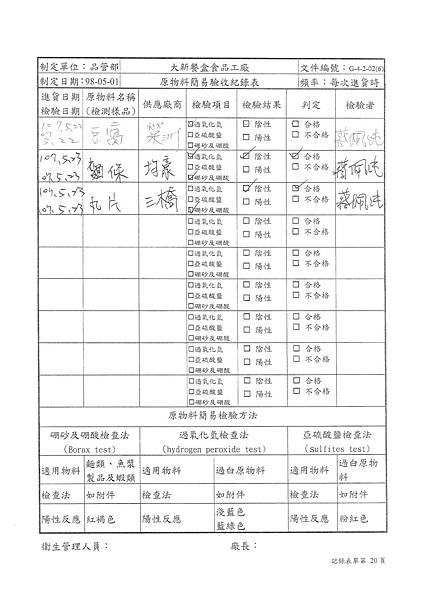 制定單位：品管部 大新餐盒食品工廠 文件編號：G-4-2-02(6)
制定日期：98-05-01 原物料簡易驗收紀錄表 頻率：每次進貨時
進貨日期 原物料名稱 供應廠商 檢驗項目 檢驗結果 判定 檢驗者
檢驗日期 (檢測樣品)
107.5.22 豆腐 □過氧化氫 □ 陰性 □ 合格
□亞硫酸鹽 □ 陽性 □ 不合格
□硼砂及硼酸
107.5.23 均豪 ☑過氧化氫 ☑ 陰性 ☑ 合格
107.5.23 ☑亞硫酸鹽 □ 陽性 □ 不合格
☑硼砂及硼酸
107.5.23 丸片 三橋 □過氧化氫 ☑ 陰性 ☑ 合格
107.5.23 □亞硫酸鹽 □ 陽性 □ 不合格
☑硼砂及硼酸
□過氧化氫 □ 陰性 □ 合格
□亞硫酸鹽 □ 陽性 □ 不合格
□硼砂及硼酸
□過氧化氫 □ 陰性 □ 合格
□亞硫酸鹽 □ 陽性 □ 不合格
□硼砂及硼酸
□過氧化氫 □ 陰性 □ 合格
□亞硫酸鹽 □ 陽性 □ 不合格
□硼砂及硼酸
□過氧化氫 □ 陰性 □ 合格
□亞硫酸鹽 □ 陽性 □ 不合格
□硼砂及硼酸
□過氧化氫 □ 陰性 □ 合格
□亞硫酸鹽 □ 陽性 □ 不合格
□硼砂及硼酸
□過氧化氫 □ 陰性 □ 合格
□亞硫酸鹽 □ 陽性 □ 不合格
□硼砂及硼酸
原物料簡易檢驗方法
硼砂及硼酸檢查法 過氧化氫檢查法 亞硫酸鹽檢查法
(Borax test) (hydrogen peroxide test) (Sulfites test)
適用物料 麵類、魚漿製品及蝦類 適用物料 過白原物料 適用物料 過白原物料
檢查法 如附件 檢查法 如附件 檢查法 如附件
陽性反應 紅褐色 陽性反應 淺藍色 藍綠色 陽性反應 粉紅色
衛生管理人員： 廠長：
記錄表單第 20 頁